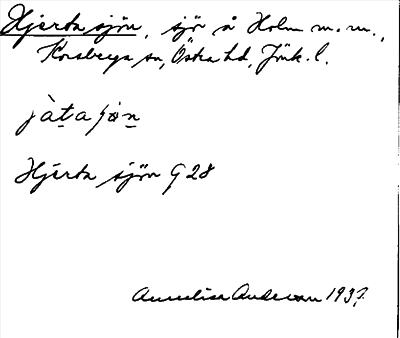 Hjertasjön, sjö å Holm m.m.,
Korsberga sn, Östra hd, Jönk. l.
jàtaʃøn
Hjerta sjön G 28
Annelisa Anderson 1937